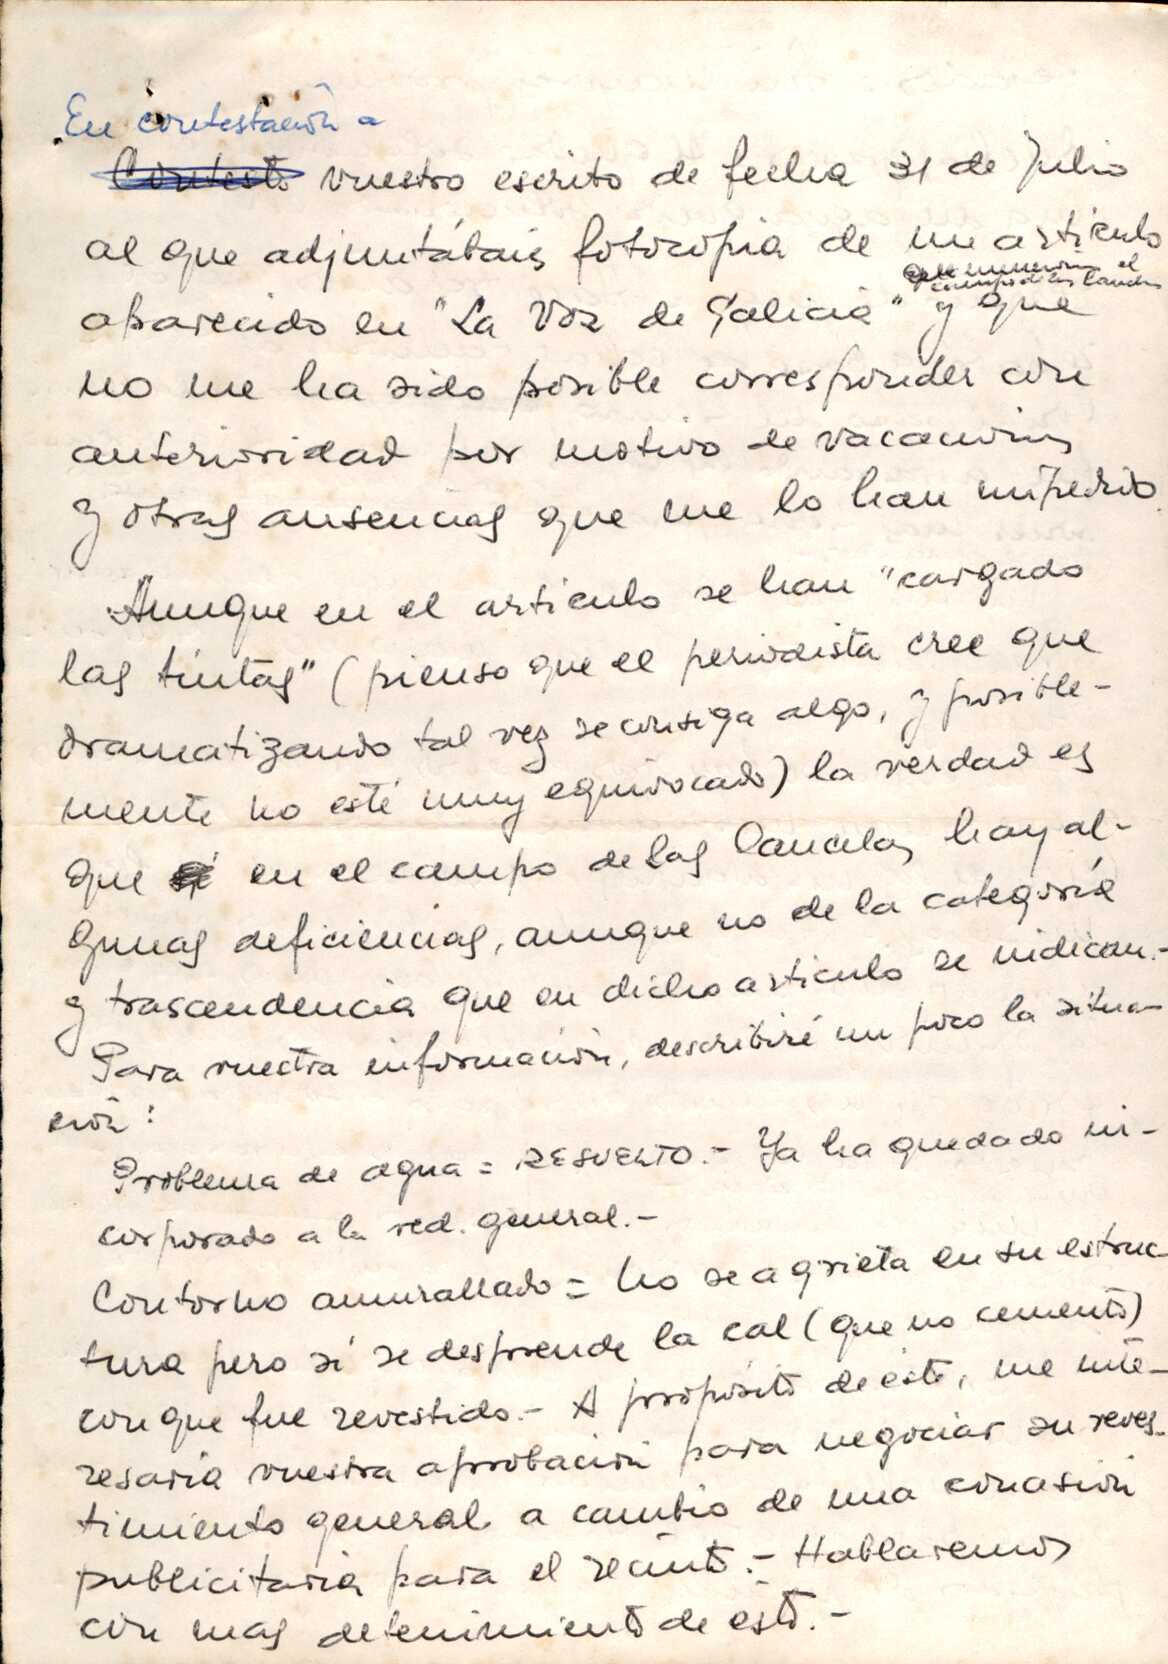 En contestación a
Contesto vuestro escrito de fecha 31 de Julio
al que adjuntábais fotocopia de un artículo
el
campo de las Canchas
aparecido en "La Voz de Galicia" y que
no me ha sido posible corresponder con
anterioridad por motivo de vacaciones
y otras ausencias que me lo han impedido.
Aunque en el artículo se han "cargado
las tintas" (pienso que el periodista cree que
dramatizando tal vez se consiga algo, y posible-
mente no esté muy equivocado) la verdad es
que en el campo de las Cancelas hay al-
gunas deficiencias, aunque no de la categoría
y trascendencia que en dicho artículo se indican.-
Para vuestra información, describiré un poco la situa-
ción:
Problema de agua = RESUELTO.- Ya ha quedado in-
corporado a la red general.-
Contorno amurallado = No se agrieta en su estruc-
tura pero sí se desprende la cal (que no cemento)
con que fue revestido.- A propósito de éste, me inte-
resaría vuestra aprobación para negociar su reves-
timiento general a cambio de una concesión
publicitaria para el recinto.- Hablaremos
con mas detenimiento de ésto.-